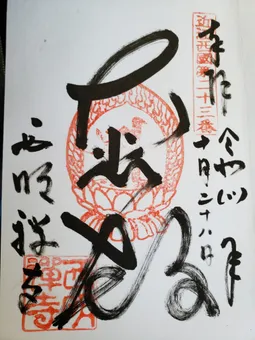 奉拝
近江西國第二十三番
令和四年
十月二十八日
西明禅寺
西明禪寺